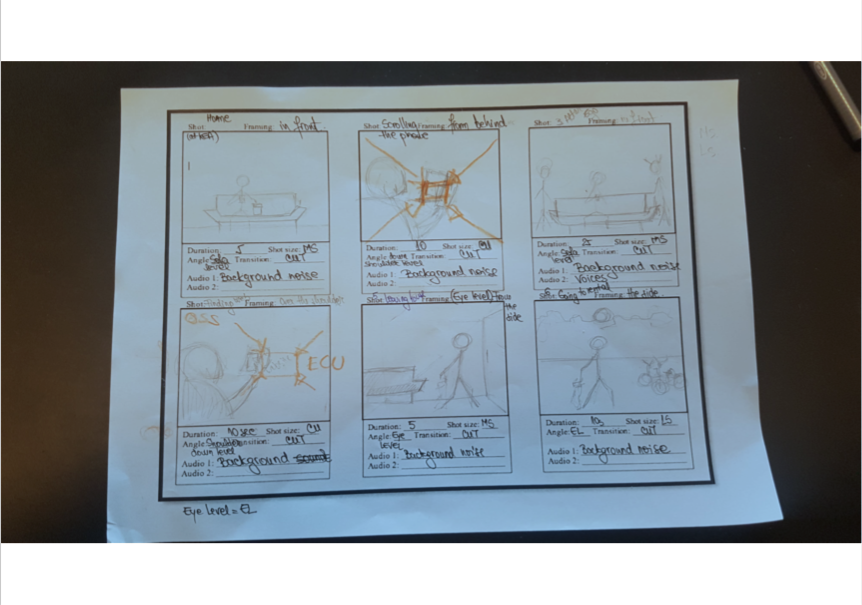 Home
Shot: Framing: in front.
Duration: 5 Shot size: MS
Angle: Sofa Transition: CUT
level
Audio 1: Background noise
Audio 2:
Shot: Scrolling Framing: from behind
the phone
Duration: 10 Shot size:
Angle: down Transition: CUT
shoulder level
Audio 1: Background noise
Audio 2:
Shot: Framing:
Duration: Shot size: MS
Angle: Sofa Transition: CUT
level
Audio 1: Background noise
Audio 2: Voices
MS
LS
Shot: Finding out Framing: Over the shoulder
OSS
ECU
Duration: 10 sec Shot size: CU
Angle: Shoulder Transition: CUT
down level
Audio 1: Background sound
Audio 2:
Shot: Framing: (Eye level) From
the
side
Duration: 5 Shot size: MS
Angle: Eye Transition: CUT
level
Audio 1: Background noise
Audio 2:
Shot: Going to Framing: the side.
Duration: Shot size: LS
Angle: EL Transition: CUT
Audio 1: Background noise
Audio 2:
Eye level = EL